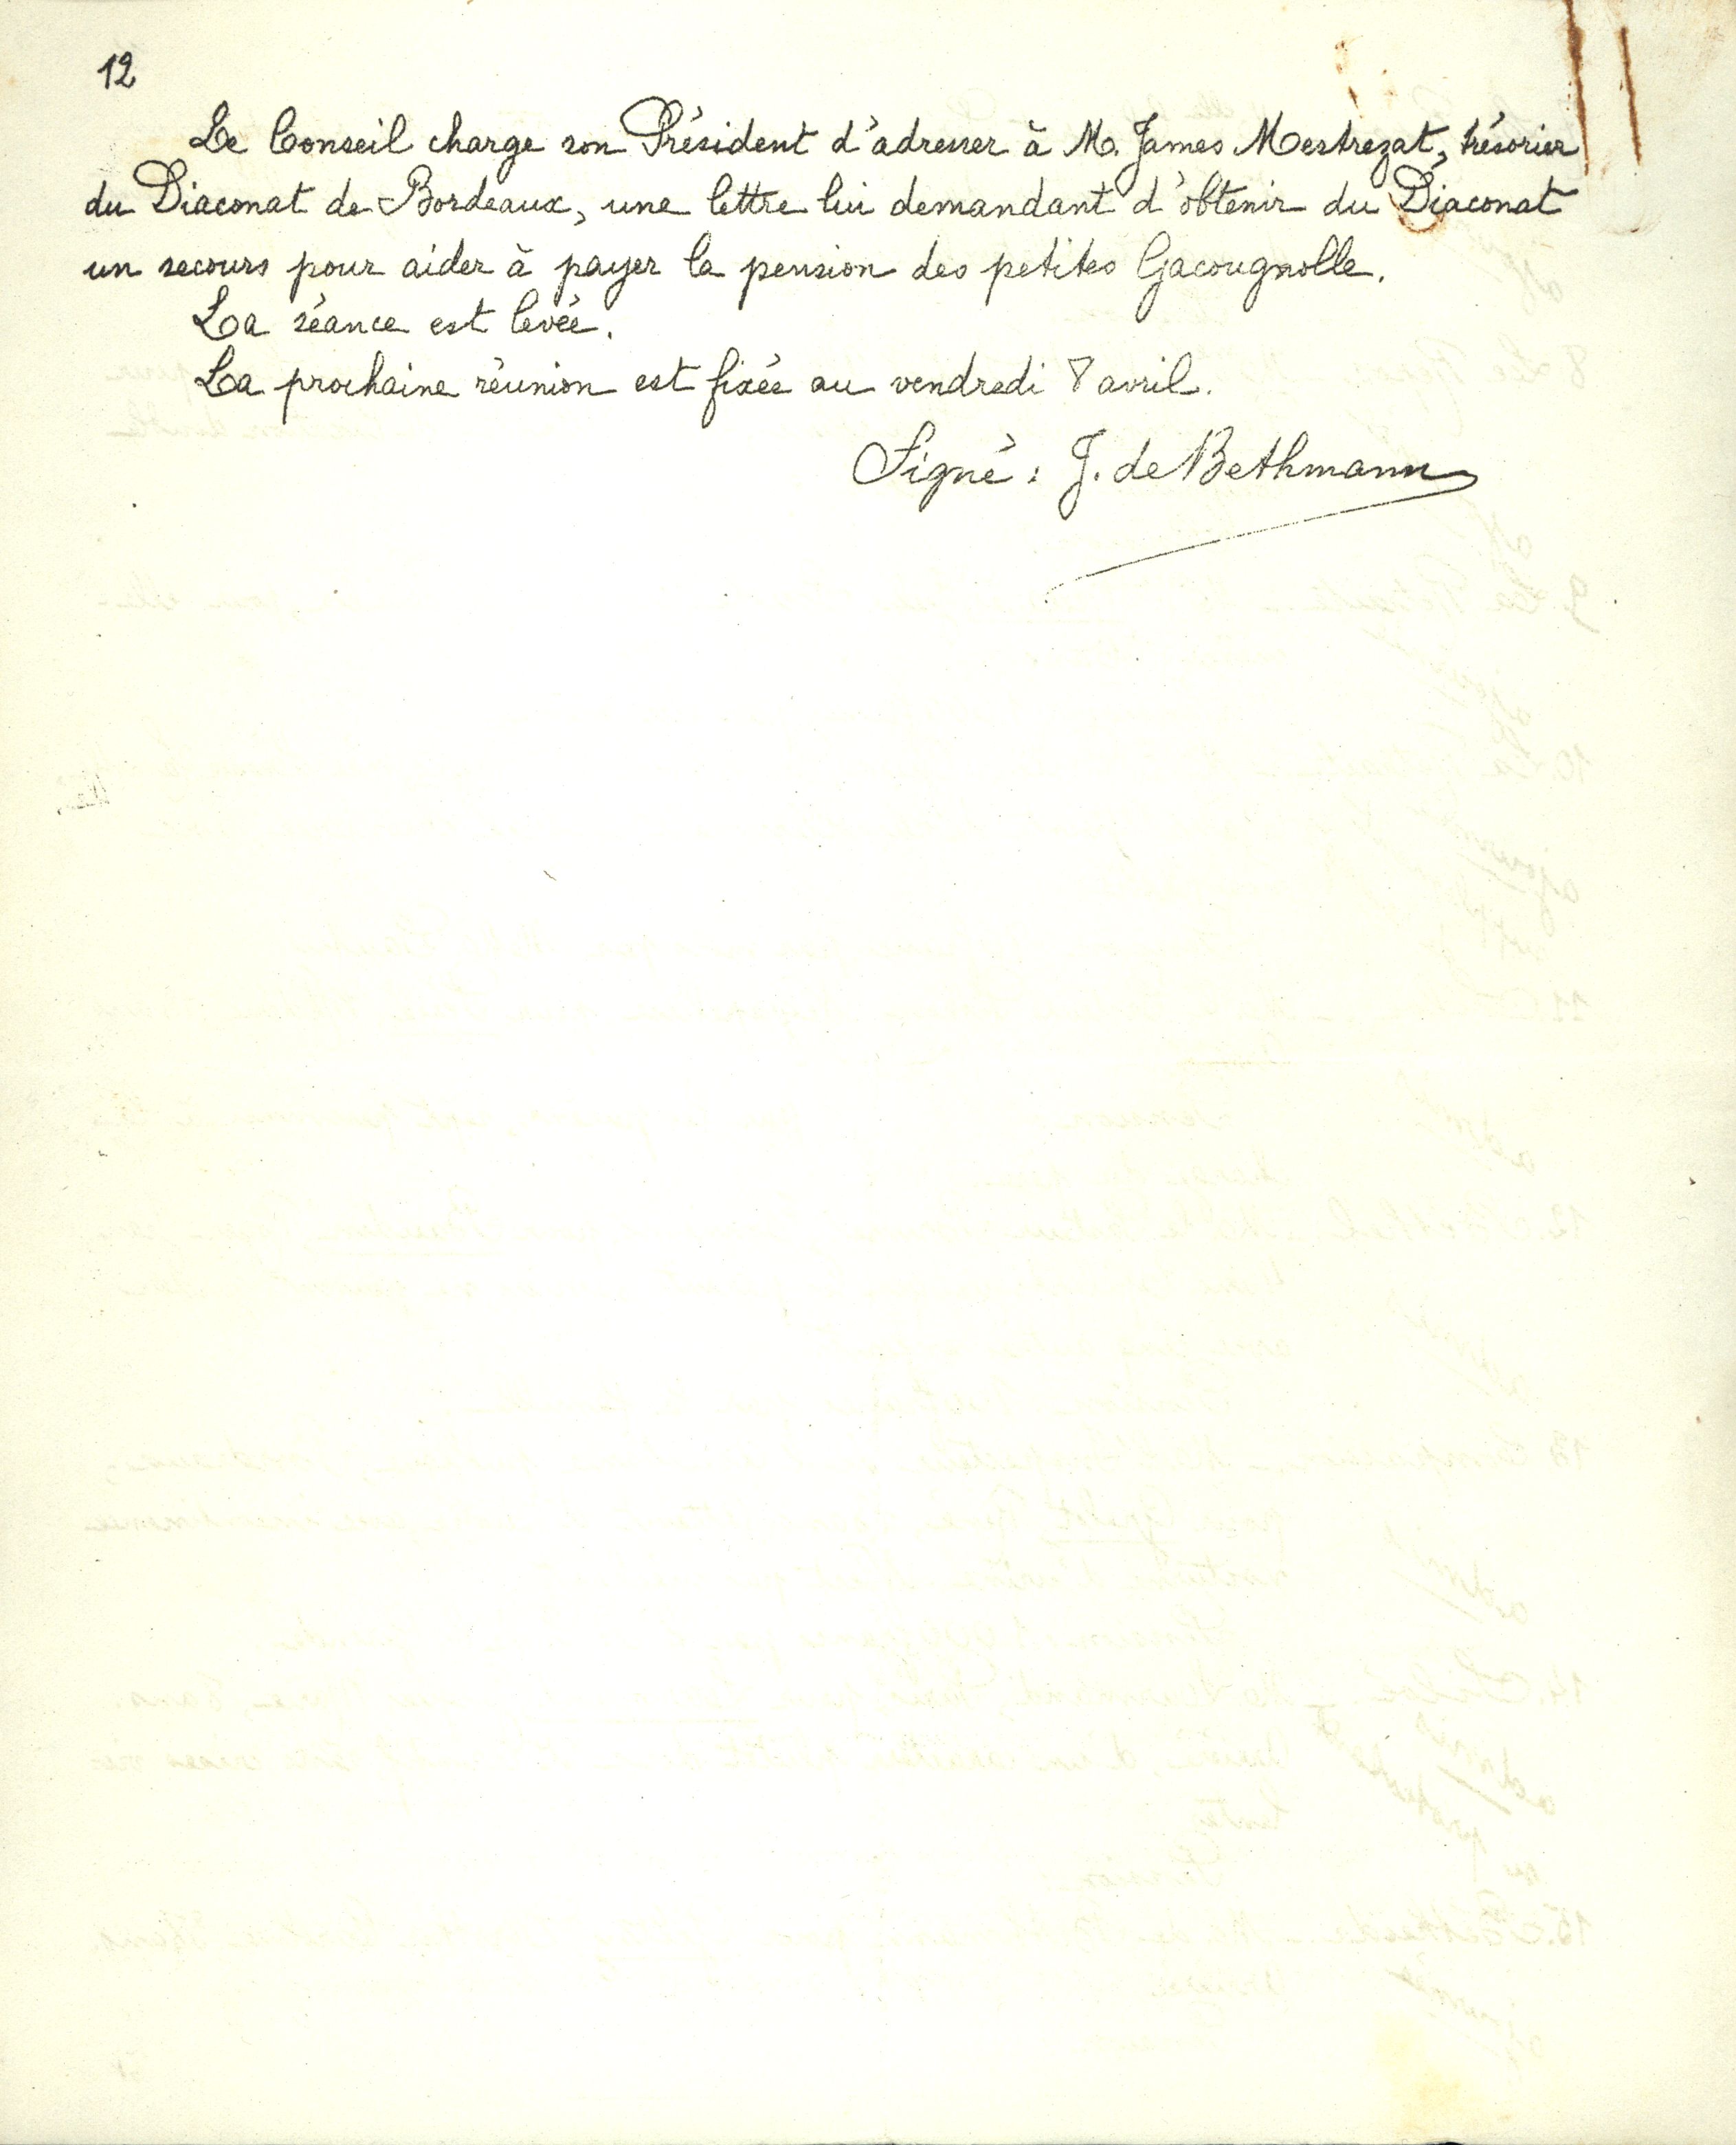 12
Le Conseil charge son Président d'adresser à M. James Mestrezat, trésorier
du Diaconat de Bordeaux, une lettre lui demandant d'obtenir du Diaconat
un secours pour aider à payer la pension des petites Gacougnolle.
La séance est levée.
La prochaine réunion est fixée au vendredi 8 avril.
Signé : J. de Bethmann